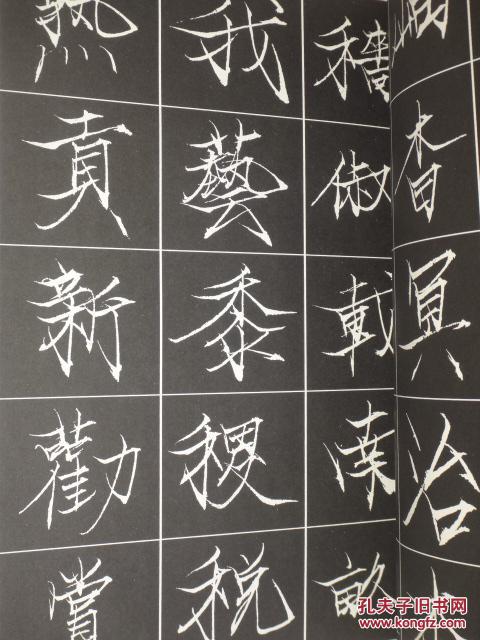 岫杳冥治本
穡俶載南畝
我藝黍稷稅
熟貢新勸賞
孔夫子旧书网
www.kongfz.com